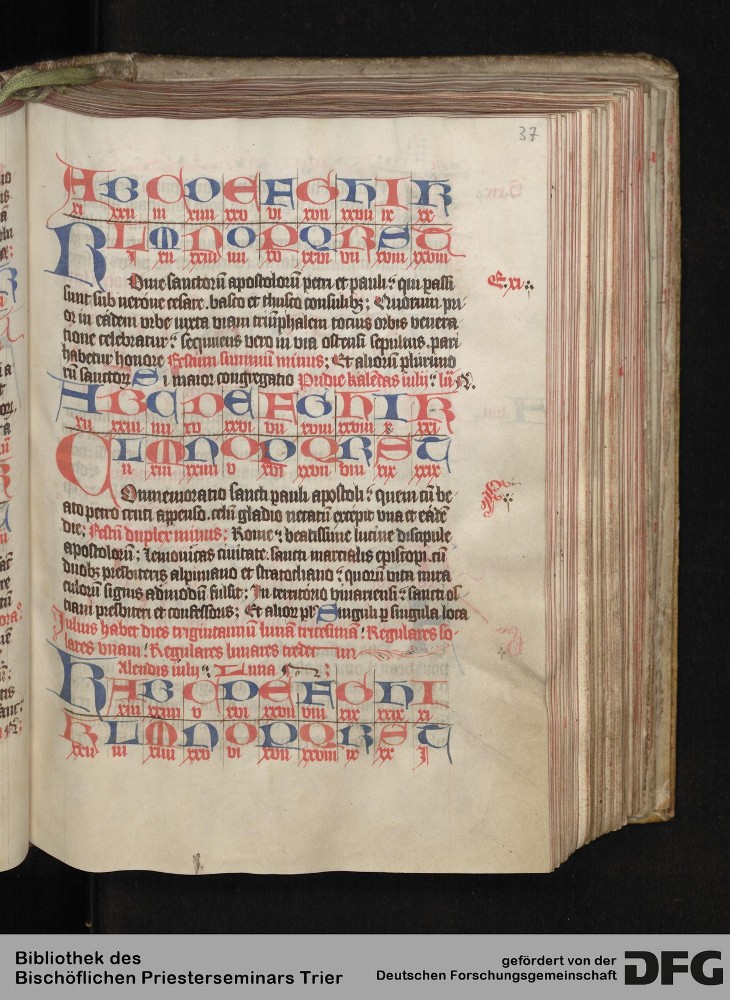 37
A B C D E F G H I K
xi xxii iii xiiii xxv vi xvii xxviii ix xx
R L M N O P Q R S T
I xii xxiii iiii xv xxvi vii xviii xxviiii
Ome sanctorũ apostolorũ petri et pauli qui passi
sunt sub nerone cesare. basso et thusco consulibꝫ; Quorum pri-
or in eadem vrbe iuxta viam triũphalem totius orbis venera
tione celebratur sequens vero in via ostensi sepultus. pari
habetur honore Festum summum minus; Et aliorũ plurimo
rũ sanctorꝫ Si maior congregatio Pridie kalendas iulij lũ
A B C D E F G H I K
xii xxiii iiii xv xxvi vii xviii xxviiii x xxi
C L M N O P Q R S T
ii xiii xxiiii v xvi xxvii viii xix xxix
Onmemoratio sancti pauli apostoli quem cũ be-
ato petro cruci appenso. celũ gladio necatũ excepit vna et eadẽ
die; Festũ duplex minus; Rome beatissime lucine discipule
apostolorũ; Lemonicas ciuitate. sancti martialis episcopi. cũ
duobꝫ presbiteris alpiniano et stratocliano quorũ vita mira
culorũ signis admodũ fulsit; In territorio viuariensi sancti os
tiani presbiteri et confessoris; Et alior pl' Singuli p singula loca
Julius habet dies trigintaunũ lunã tricesimã Regulares so-
lares vnum Regulares lunares tredecim
Alendis iulij Luna
K A B C D E F G H I
xiii xxiiii v xvi xxvii viii xix xxix xi
K L M N O P Q R S T
xxii iii xiiii xxv vi xvii xxviii ix xx I
Bibliothek des
Bischöflichen Priesterseminars Trier
gefördert von der
Deutschen Forschungsgemeinschaft
DFG